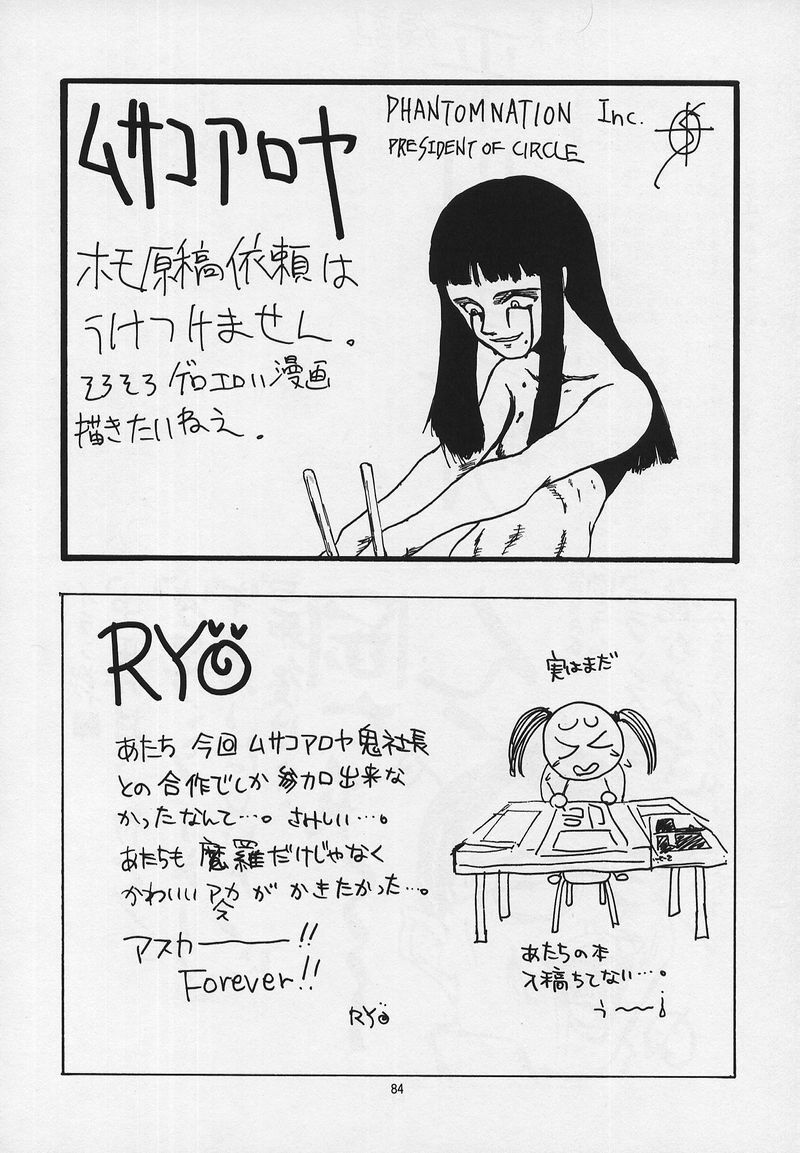 ムサコアロヤ
PHANTOMNATION Inc.
PRESIDENT OF CIRCLE
ホモ原稿依頼は
うけつけません。
そろそろ ゲロエロい漫画
描きたいねえ。
RYO
あたち 今回 ムサコアロヤ鬼社長
との 合作でしか 参加出来な
かったなんて…。さみしい…。
あたちも 魔羅だけじゃなく
かわいい アスカ が かきたかった…。
アスカー!!
Forever!!
RYO
実はまだ
あたちの本
入稿ちてない…。
う〜〜!
84